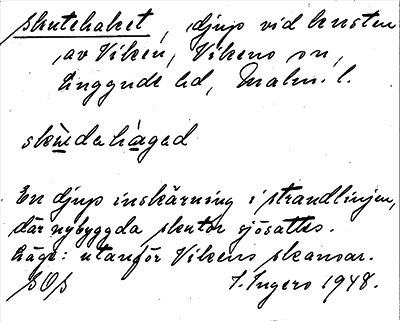 skutehaket, djup vid kusten
av Viken, Vikens sn,
Luggude hd, Malm. l.
skùedahàged
En djup inskärning i strandlinjen,
där nybyggda skutor sjösattes.
Läge: utanför Vikens skansar.
SOS I. Ingers 1948.